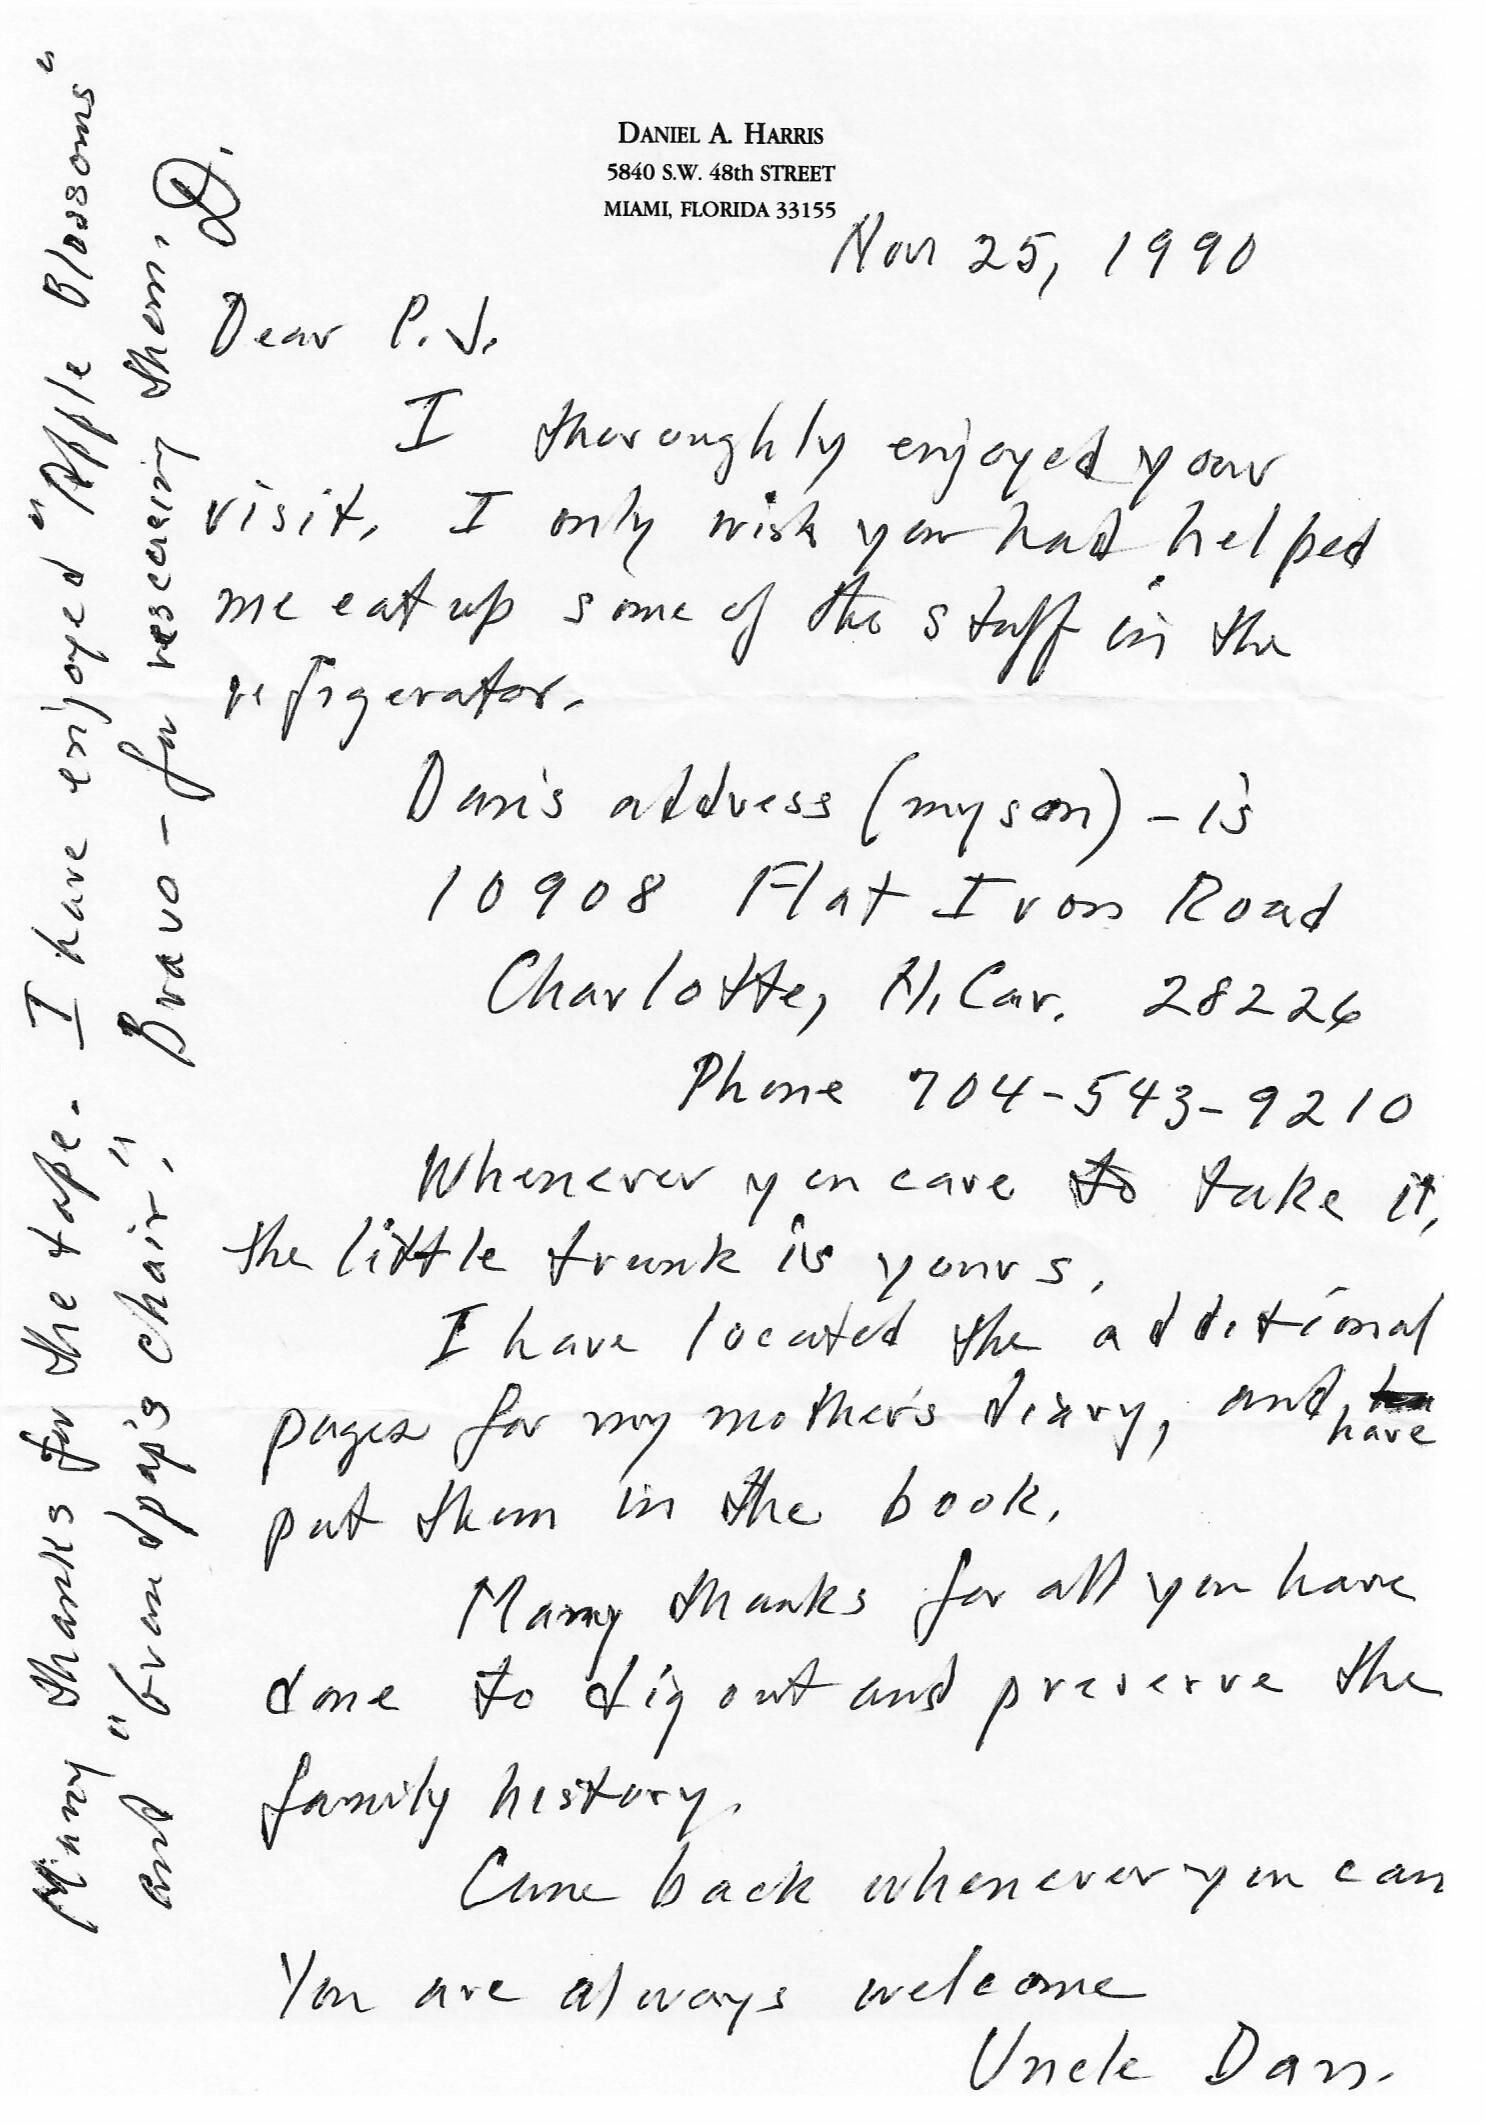 DANIEL A. HARRIS
5840 S.W. 48th STREET
MIAMI, FLORIDA 33155
Nov 25, 1990
Dear P.J.
I thoroughly enjoyed your
visit. I only wish you had helped
me eat up some of the stuff in the
refrigerator.
Dan's address (my son) – is
10908 Flat Iron Road
Charlotte, N. Car. 28226
Phone 704-543-9210
Whenever you care to take it,
the little trunk is yours.
I have located the additional
pages for my mother's diary, and have
put them in the book.
Many thanks for all you have
done to dig out and preserve the
family history.
Come back whenever you can
You are always welcome
Uncle Dan.
Many thanks for the tape. I have enjoyed "Apple Blossoms"
and "Grandpap's chair." Bravo – for rescuing them. D.